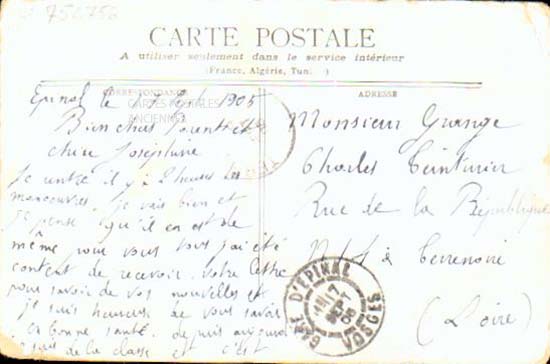 752752
CARTE POSTALE
A utiliser seulement dans le service intérieur
(France, Algérie, Tun. )
CORRESPONDANCE
ADRESSE
CARTES POSTALES
ANCIENNES
Epinal le 1905
Bien chers Parents et
chère Joséphine
Je rentre il y a 2 heures des
manoeuvres je vais bien et
je pense qu'il en est de
même pour vous tous j'ai été
content de recevoir votre lettre
pour savoir de vos nouvelles et
je suis heureux de vous savoir
en bonne santé depuis aujourd
de la classe et c'est
Monsieur Grange
Charles Teinturier
Rue de la République
à Terrenoire
(Loire)
GARE D'EPINAL
17
SEPT
05
VOSGES